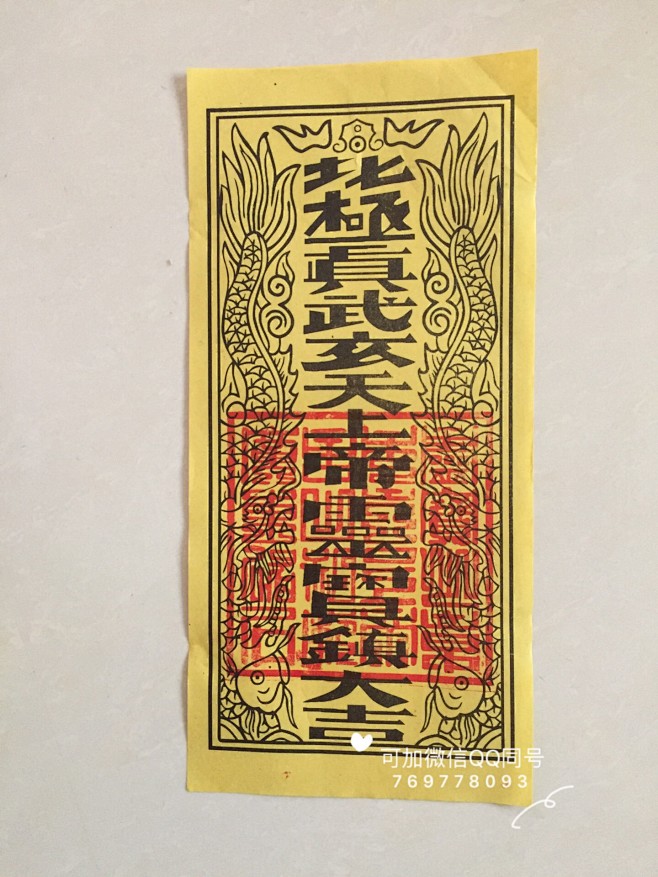 北極真武玄天上帝靈寶鎮大吉
可加微信QQ同号
769778093